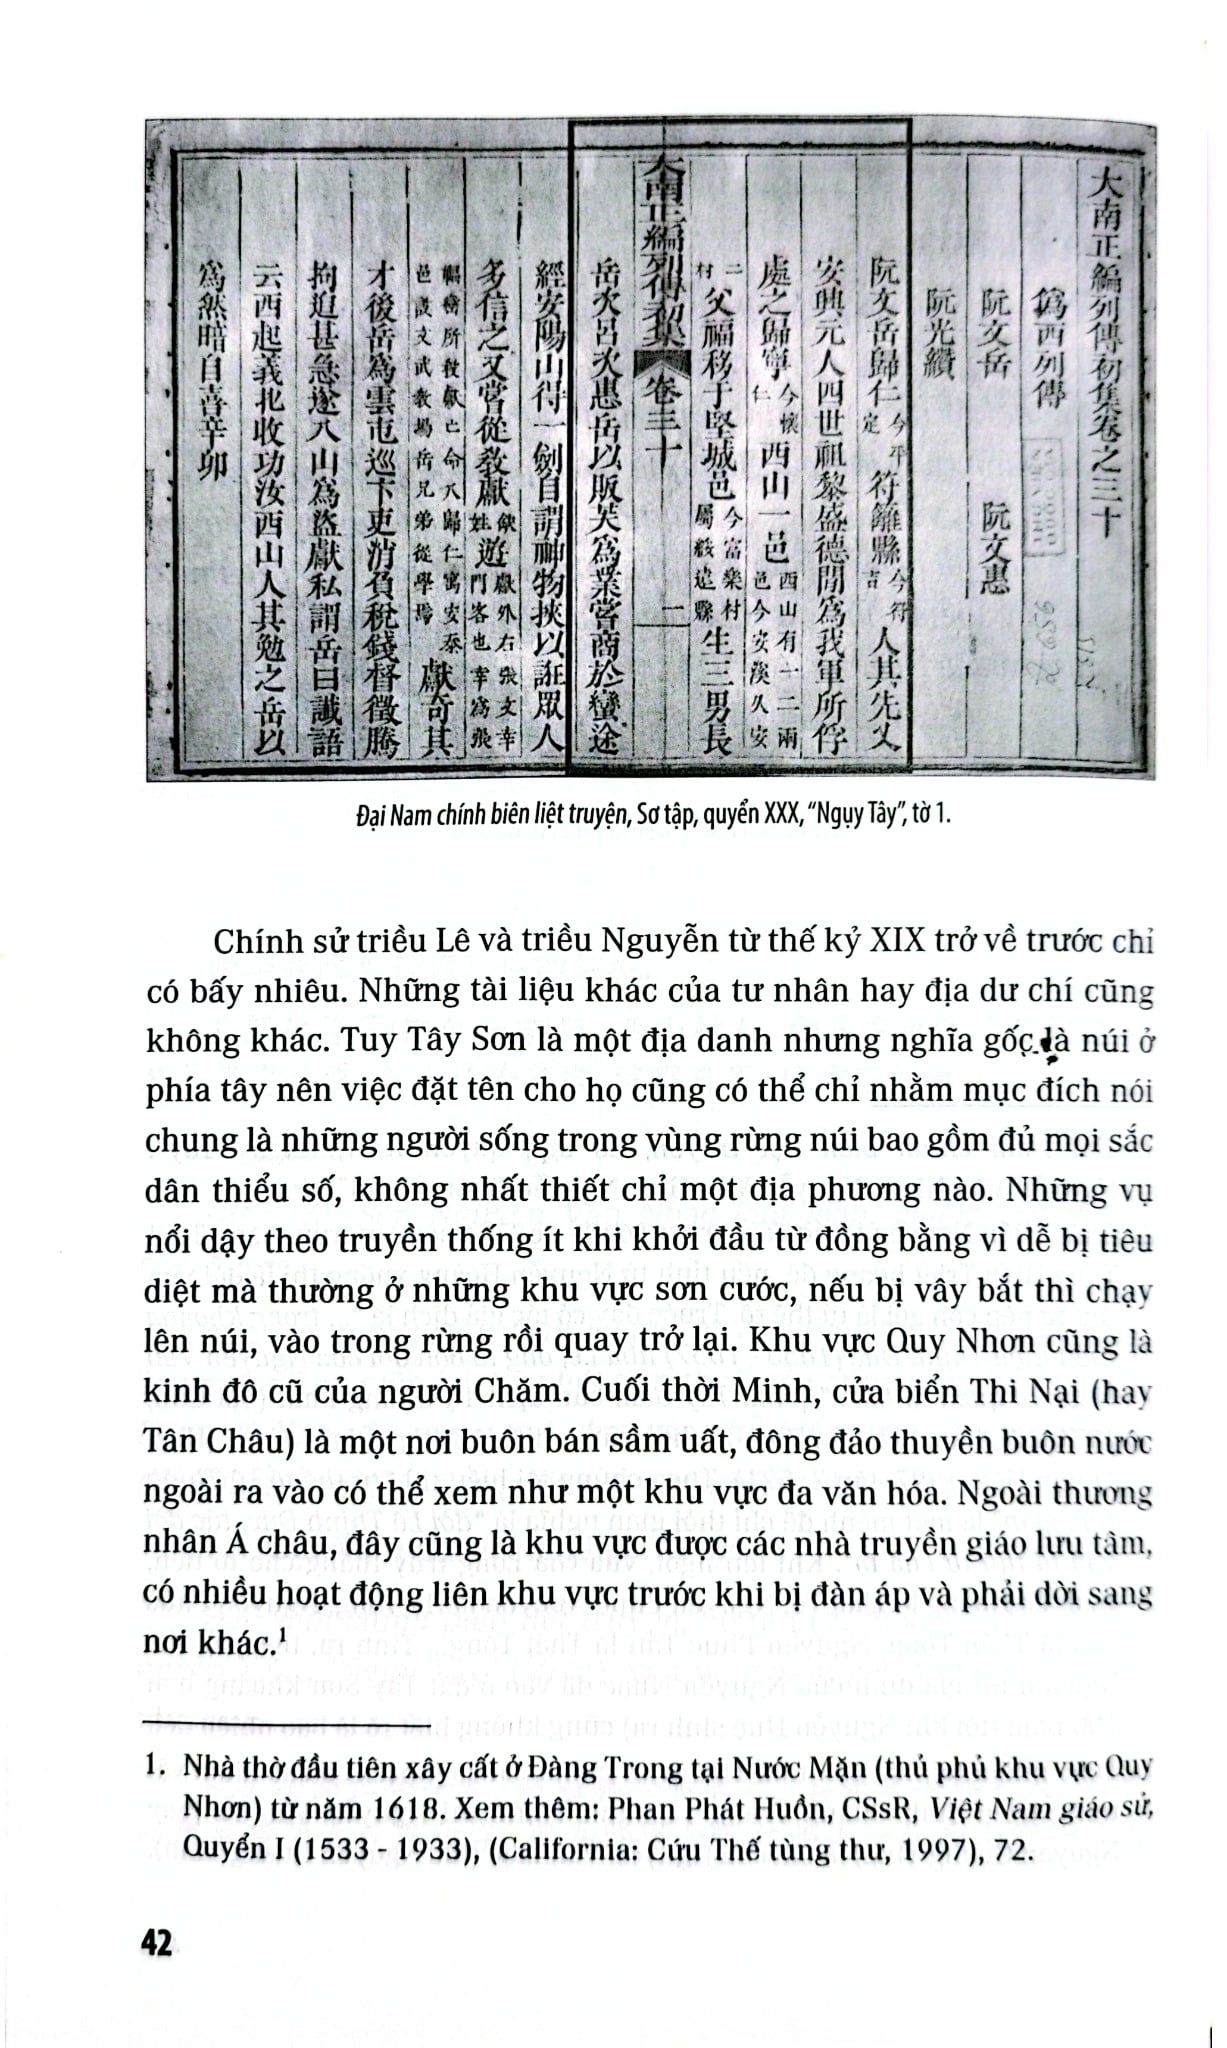 大南正編列傳初集卷之三十
僞西列傳
阮文岳 阮文惠
阮光纘
阮文岳歸仁今平定符籬縣今符吉人其先乂
安興元人四世祖黎盛德間爲我軍所俘
處之歸寧今懷仁西山一邑西山有一二兩邑今安溪久安
二村父福移于堅城邑今富樂村屬綏遠縣生三男長
大南正編列傳初集 卷三十 一
岳次呂次惠岳以販芙爲業嘗商於蠻途
經安陽山得一劍自謂神物挾以誑眾人
多信之又嘗從教獻獻外右張文幸門客也幸爲張
福巒所殺獻亡命入歸仁寓安泰邑設文武教場岳兄弟從學焉獻奇其
才後岳爲雲屯巡下吏消負稅錢督徵騰
拘迫甚急遂入山爲盜獻私謂岳曰讖語
云西起義北收功汝西山人其勉之岳以
爲然暗自喜辛卯
Đại Nam chính biên liệt truyện, Sơ tập, quyển XXX, “Ngụy Tây”, tờ 1.
Chính sử triều Lê và triều Nguyễn từ thế kỷ XIX trở về trước chỉ
có bấy nhiêu. Những tài liệu khác của tư nhân hay địa dư chí cũng
không khác. Tuy Tây Sơn là một địa danh nhưng nghĩa gốc là núi ở
phía tây nên việc đặt tên cho họ cũng có thể chỉ nhằm mục đích nói
chung là những người sống trong vùng rừng núi bao gồm đủ mọi sắc
dân thiểu số, không nhất thiết chỉ một địa phương nào. Những vụ
nổi dậy theo truyền thống ít khi khởi đầu từ đồng bằng vì dễ bị tiêu
diệt mà thường ở những khu vực sơn cước, nếu bị vây bắt thì chạy
lên núi, vào trong rừng rồi quay trở lại. Khu vực Quy Nhơn cũng là
kinh đô cũ của người Chăm. Cuối thời Minh, cửa biển Thi Nại (hay
Tân Châu) là một nơi buôn bán sầm uất, đông đảo thuyền buôn nước
ngoài ra vào có thể xem như một khu vực đa văn hóa. Ngoài thương
nhân Á châu, đây cũng là khu vực được các nhà truyền giáo lưu tâm,
có nhiều hoạt động liên khu vực trước khi bị đàn áp và phải dời sang
nơi khác.¹
1. Nhà thờ đầu tiên xây cất ở Đàng Trong tại Nước Mặn (thủ phủ khu vực Quy
Nhơn) từ năm 1618. Xem thêm: Phan Phát Huồn, CSsR, Việt Nam giáo sử,
Quyển I (1533 - 1933), (California: Cứu Thế tùng thư, 1997), 72.
42